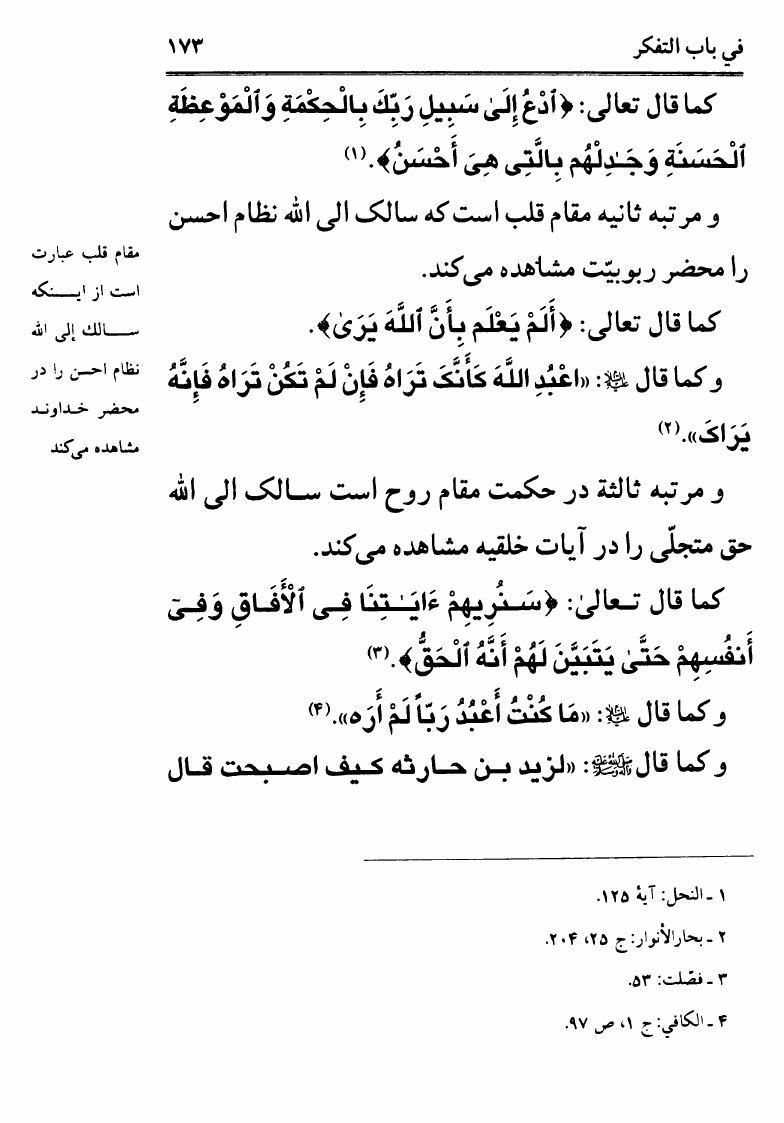 في باب التفكر ۱۷۳
كما قال تعالى: ﴿ٱدْعُ إِلَىٰ سَبِيلِ رَبِّكَ بِالْحِكْمَةِ وَٱلْمَوْعِظَةِ
ٱلْحَسَنَةِ وَجَـٰدِلْهُم بِالَّتِى هِىَ أَحْسَنُ﴾.(۱)
و مرتبه ثانيه مقام قلب است كه سالک الى الله نظام احسن
را محضر ربوبيّت مشاهده مى‌كند.
كما قال تعالى: ﴿أَلَمْ يَعْلَم بِأَنَّ ٱللَّهَ يَرَىٰ﴾.
و كما قال ﷷ: «اعْبُدِ اللَّهَ كَأَنَّکَ تَرَاهُ فَإِنْ لَمْ تَكُنْ تَرَاهُ فَإِنَّهُ
يَرَاکَ».(۲)
و مرتبه ثالثة در حكمت مقام روح است سـالک الى الله
حق متجلّى را در آيات خلقيه مشاهده مى‌كند.
كما قال تـعالىٰ: ﴿سَـنُرِيهِمْ ءَايَـٰتِنَا فِـى ٱلْأَفَـاقِ وَفِـىٓ
أَنفُسِهِمْ حَتَّىٰ يَتَبَيَّنَ لَهُمْ أَنَّهُ ٱلْحَقُّ﴾.(۳)
و كما قال ﷷ: «مَا كُنْتُ أَعْبُدُ رَبّاً لَمْ أَرَه».(۴)
و كما قال ﷺ: «لزيد بـن حـارثه كـيف اصـبحت قـال
مقام قلب عبارت
است از ايـنكه
سـالك إلى الله
نظام احسن را در
محضر خـداونـد
مشاهده مى‌كند
۱ ـ النحل: آيۀ ۱۲۵.
۲ ـ بحارالأنوار: ج ۲۵، ۲۰۴.
۳ ـ فصّلت: ۵۳.
۴ ـ الكافي: ج ۱، ص ۹۷.